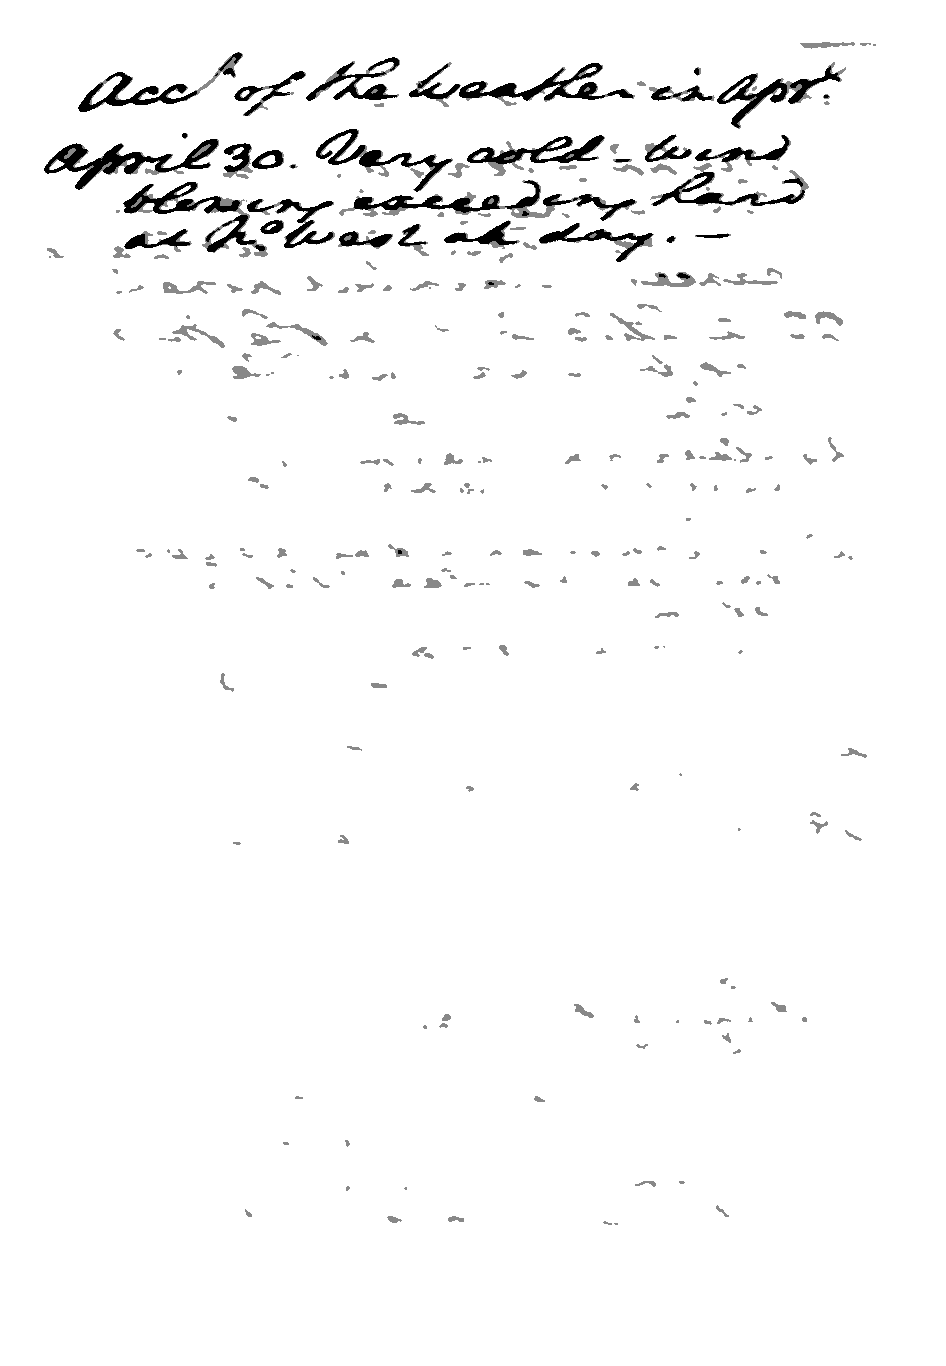 Acct of the Weather in Apr.
April 30. Very cold - Wind
blowing exceeding hard
at No. West all day. —